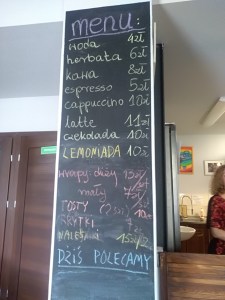 menu:
woda 4zł
herbata 6zł
kawa 8zł
espresso 5zł
cappuccino 10zł
latte 11zł
czekolada 10zł
LEMONIADA 10zł
duży 13zł
mały 7zł
TOSTY (2szt) 10zł
FRYTKI
NALEŚ
DZIŚ POLECAMY